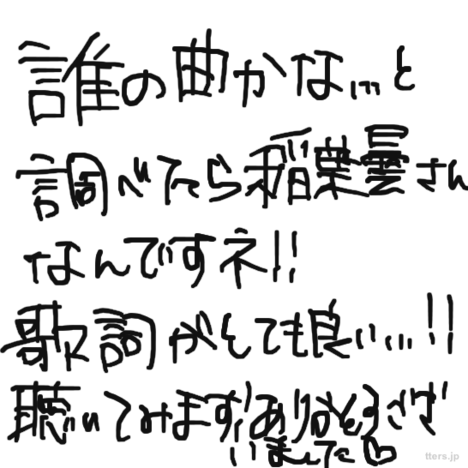 誰の曲かな…と
調べてたら稲葉曇さん
なんですネ!!
歌詞がとても良い…!!
聴いてみます!ありがとうござ
いました♡
tters.jp